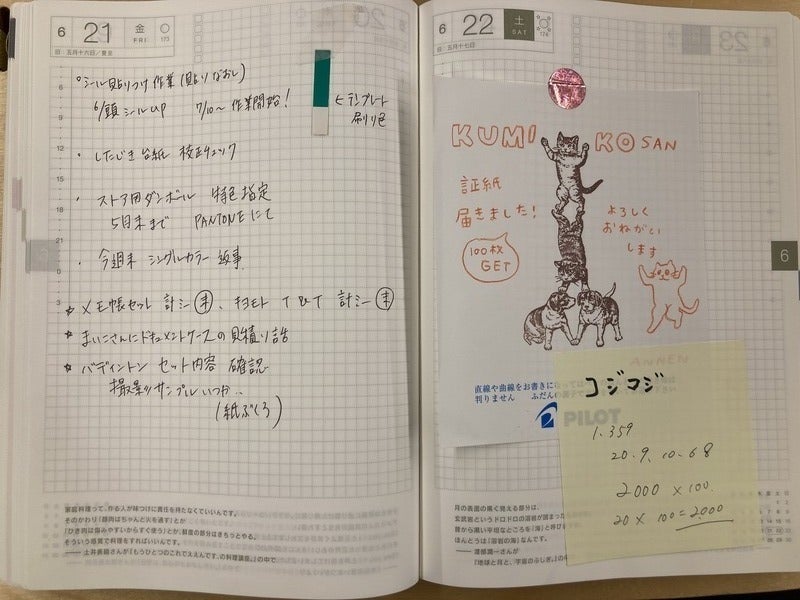 6 21 金 FRI 173
旧 五月十六日/夏至
シール貼りつけ作業(貼りなおし)
6/頭 シールUP 7/10〜 作業開始!
テンプレート
刷り色
・したじき台紙 校正チェック
・ストア用ダンボール 特色指定
5月末まで PANTONEにて
・今週末 シングルカラー 返事
☆メモ帳セット 計シー 未、 計シー 未
☆まいこさんにドキュメントケースの見積り話
☆バディントン セット内容 確認
撮影サンプルいつか..
(紙ぶくろ)
6
9
12
15
18
21
0
3
家庭料理って、作る人が味つけに責任を持たなくていいんです。
そのかわり「豚肉はちゃんと火を通す」とか
「ひき肉は傷みやすいからすぐ使う」とか、最低の部分はきちっとやる。
そういう感覚で料理をすればいいんです。
――土井善晴さんが『もうひとつのこれでええんです。の料理講座。』の中で
6 22 土 SAT 174
旧 五月十七日
KUMI KO SAN
証紙
届きました!
100枚
GET
よろしく
おねがい
します
ANNEN
直線や曲線をお書きに
判りません ふだんの
PILOT
コジマジ
1.359
20.9.10.68
2000 × 100.
20 × 100 = 2000
6
月の表面の黒く見える部分は、
玄武岩というドロドロの溶岩が固まった
昔から黒い平坦なところを「海」と呼び
ほんとうは「溶岩の海」なんです。
――渡部潤一さんが
『地球と月と、宇宙のふしぎ。』の